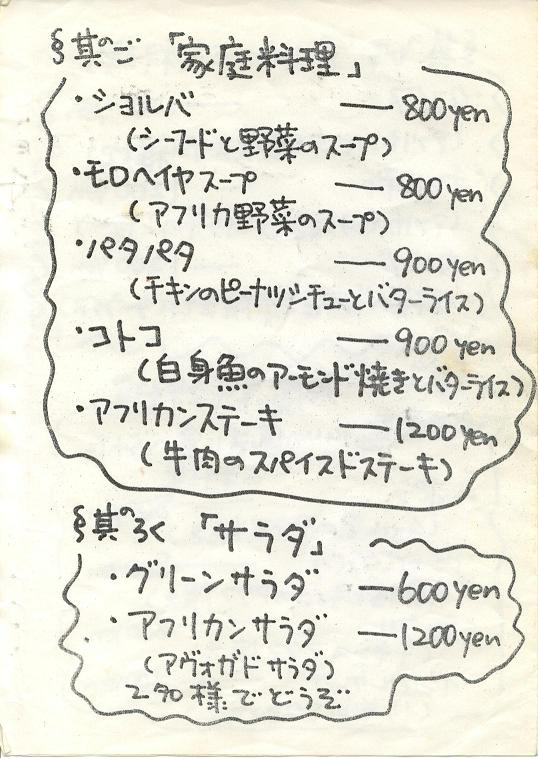 §其のご 「家庭料理」
・ショルバ ― 800yen
(シーフードと野菜のスープ)
・モロヘイヤスープ ― 800yen
(アフリカ野菜のスープ)
・パタパタ ― 900yen
(チキンのピーナッツシチューとバターライス)
・コトコ ― 900yen
(白身魚のアーモンド焼きとバターライス)
・アフリカンステーキ ― 1200yen
(牛肉のスパイスドステーキ)
§其のろく 「サラダ」
・グリーンサラダ ― 600yen
・アフリカンサラダ ― 1200yen
(アヴォガドサラダ)
2〜3名様でどうぞ